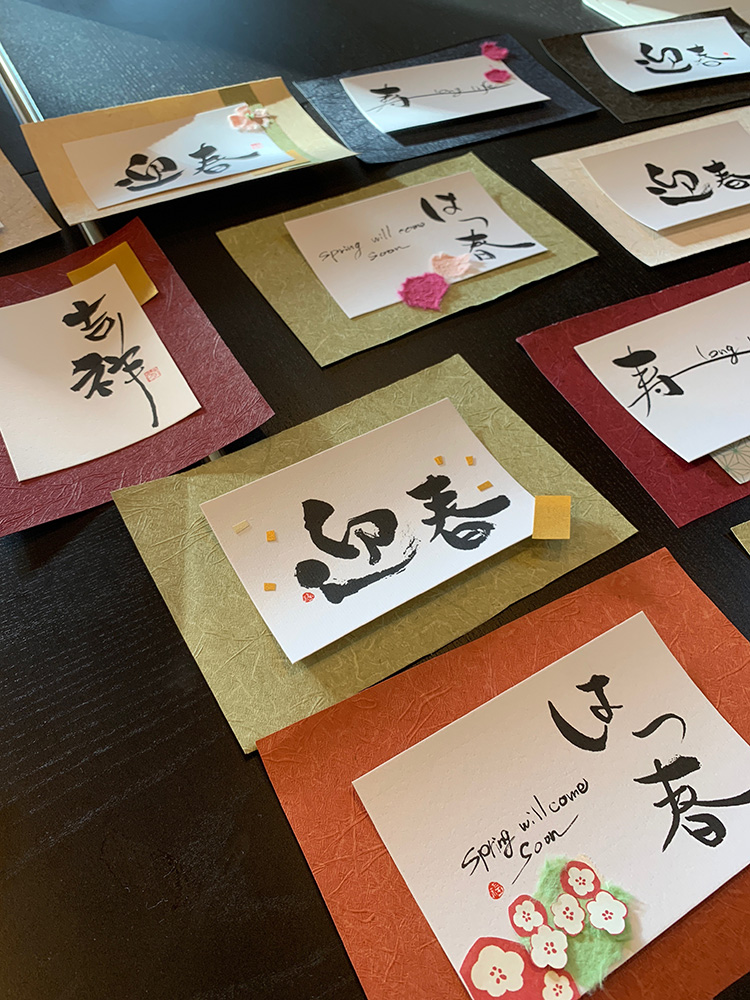 迎春
寿 long life
迎春
迎春
はつ
春
spring will come
soon
吉
祥
寿 long
迎春
はつ
春
spring will come
soon